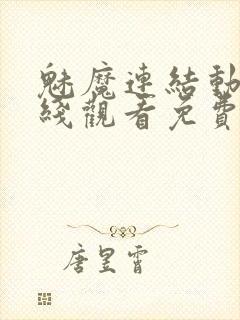 魅魔連結動
綫觀看免費
唐昱霄